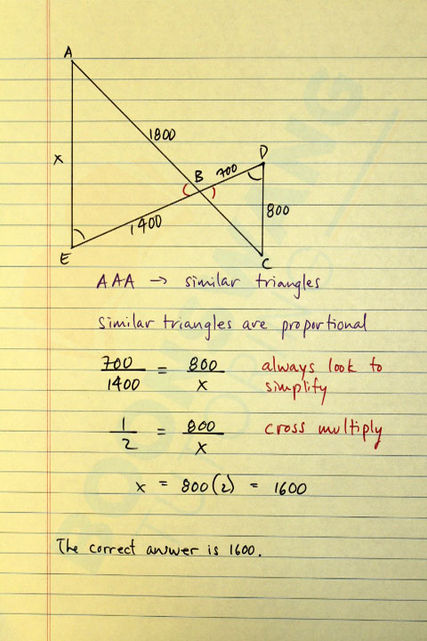 A
1800
x
B
700
D
800
1400
E
C
AAA → similar triangles
similar triangles are proportional
700/1400 = 800/x always look to
simplify
1/2 = 800/x cross multiply
x = 800(2) = 1600
The correct answer is 1600.